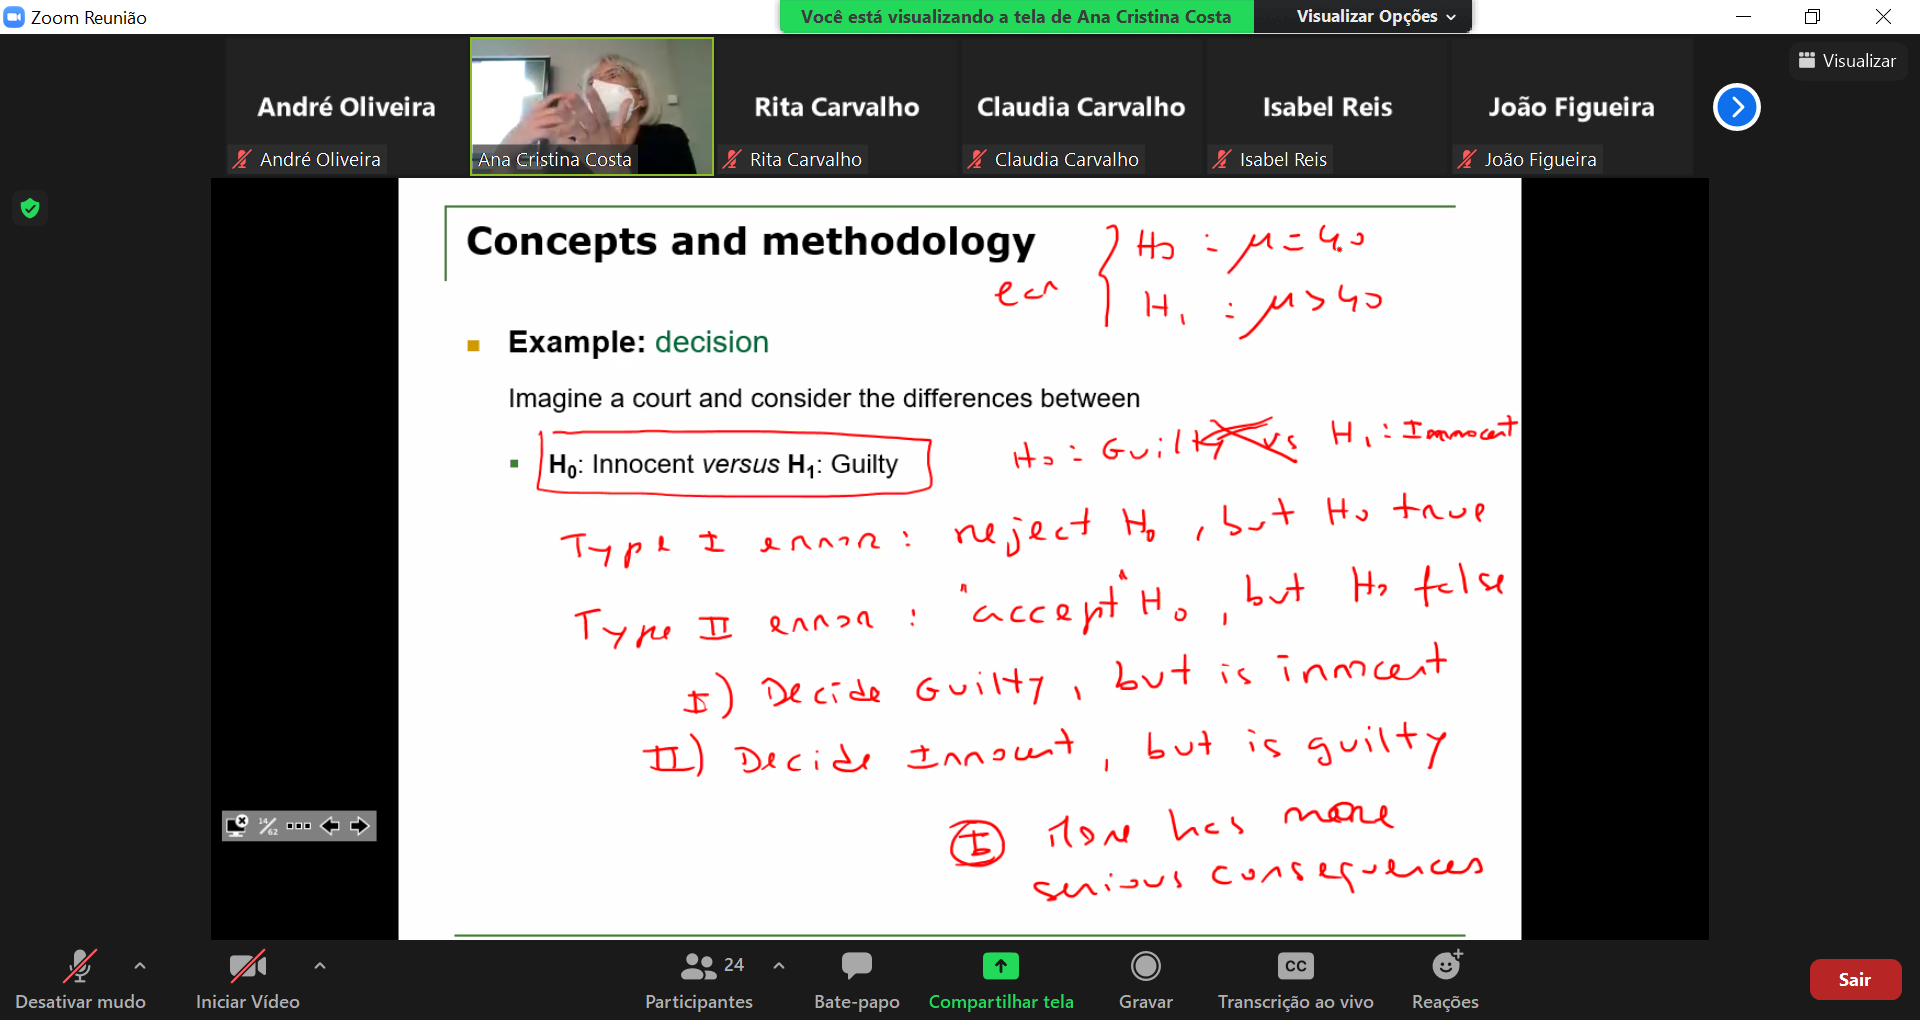 Zoom Reunião
Você está visualizando a tela de Ana Cristina Costa
Visualizar Opções
Visualizar
André Oliveira
Rita Carvalho
Claudia Carvalho
Isabel Reis
João Figueira
André Oliveira
Ana Cristina Costa
Rita Carvalho
Claudia Carvalho
Isabel Reis
João Figueira
Concepts and methodology
H0 : μ = 40
H1 : μ > 40
Example: decision
Imagine a court and consider the differences between
H0: Innocent versus H1: Guilty
H0 : Guilty vs H1 : Innocent
Type I error : reject H0, but H0 true
Type II error : "accept" H0, but H0 false
I) Decide Guilty, but is innocent
II) Decide Innocent, but is guilty
I has more
serious consequences
14/62
Desativar mudo
Iniciar Vídeo
24
Participantes
Bate-papo
Compartilhar tela
Gravar
CC
Transcrição ao vivo
Reações
Sair